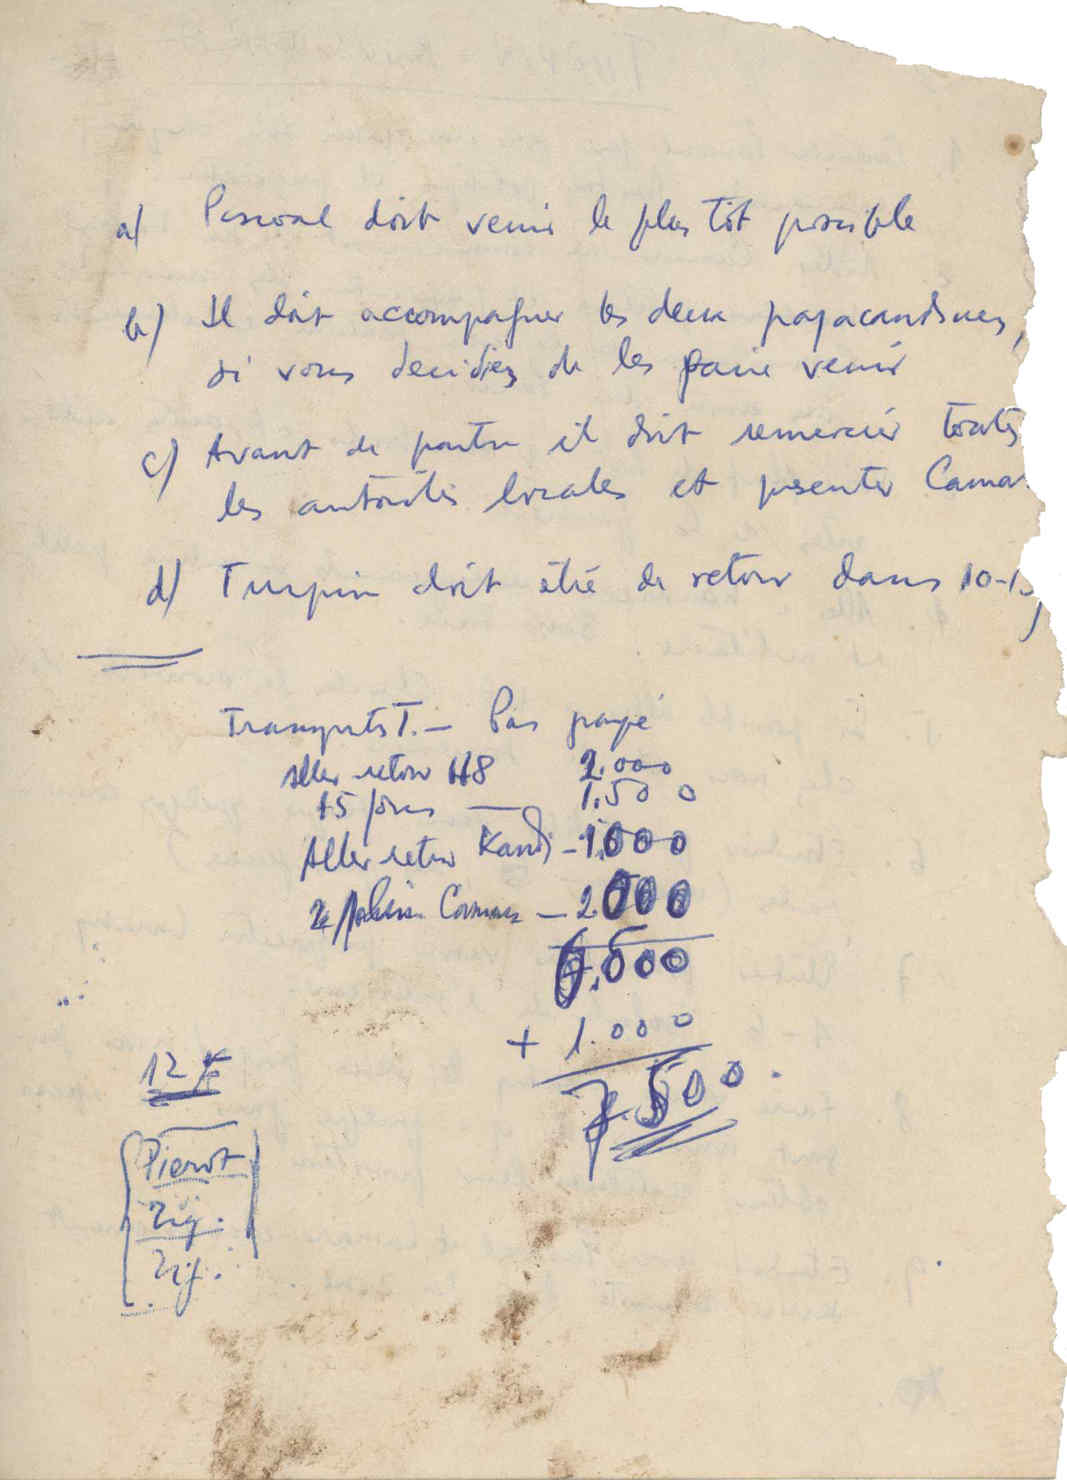 a) Pascoal doit venir le plus tôt possible
b) Il doit accompagner les deux
si vous decidiez de les faire venir
c) Avant de partir il doit remercier toutes
les autorités locales et presenter Camar
d) Turpin doit être de retour dans 10-15
Transports T. — Pas payé
Aller retour 2.000
15 jours — 1.500
Aller retour Kandi - 1.000
Camar — 2.000
6.500
+ 1.000
7.500.
12 F
Pierrot
Zig.
Zig.